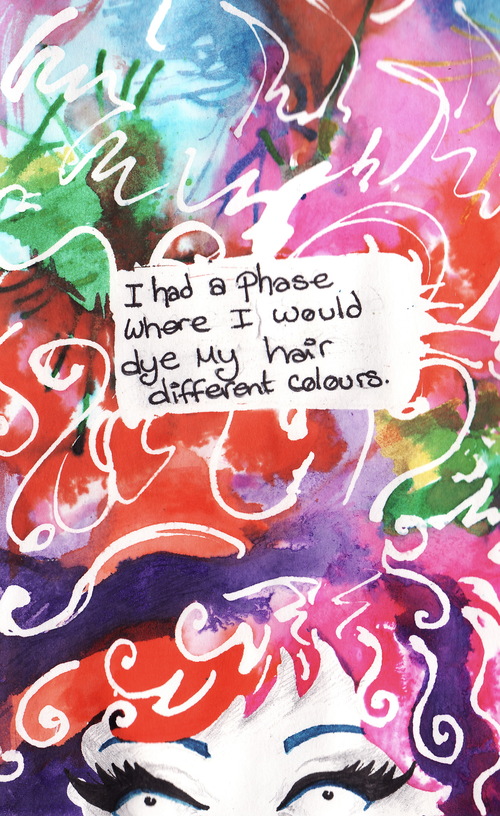 I had a phase
where I would
dye my hair
different colours.